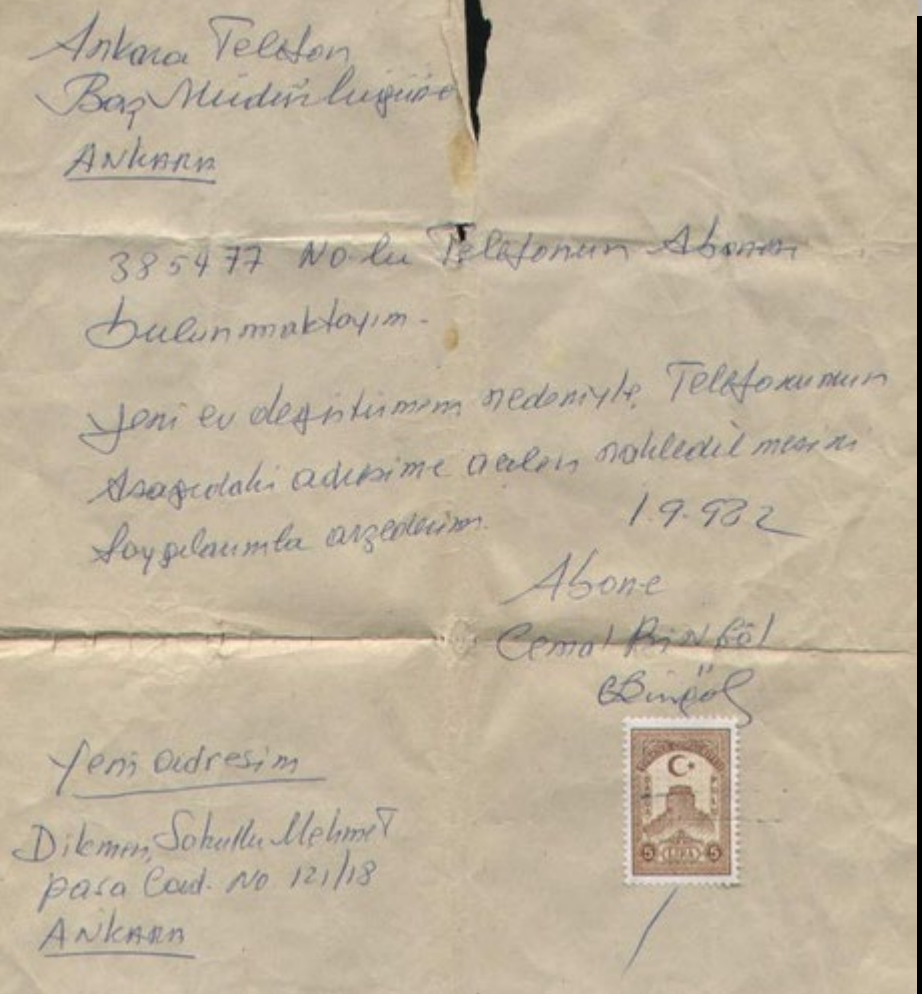 Ankara Telefon
Baş Müdürlüğüne
ANKARA
385477 No.lu Telefonun Abonesi
bulunmaktayım.
Yeni ev değiştirmem nedeniyle, Telefonumun
Aşağıdaki adresime acilen nakledilmesini
Saygılarımla arzederim.
1.9.982
Abone
Cemal BiNGöl
CBingöl
Yeni adresim
Dikmen, Sokullu Mehmet
paşa Cad. No 121/18
ANKARA
5 LİRA 5